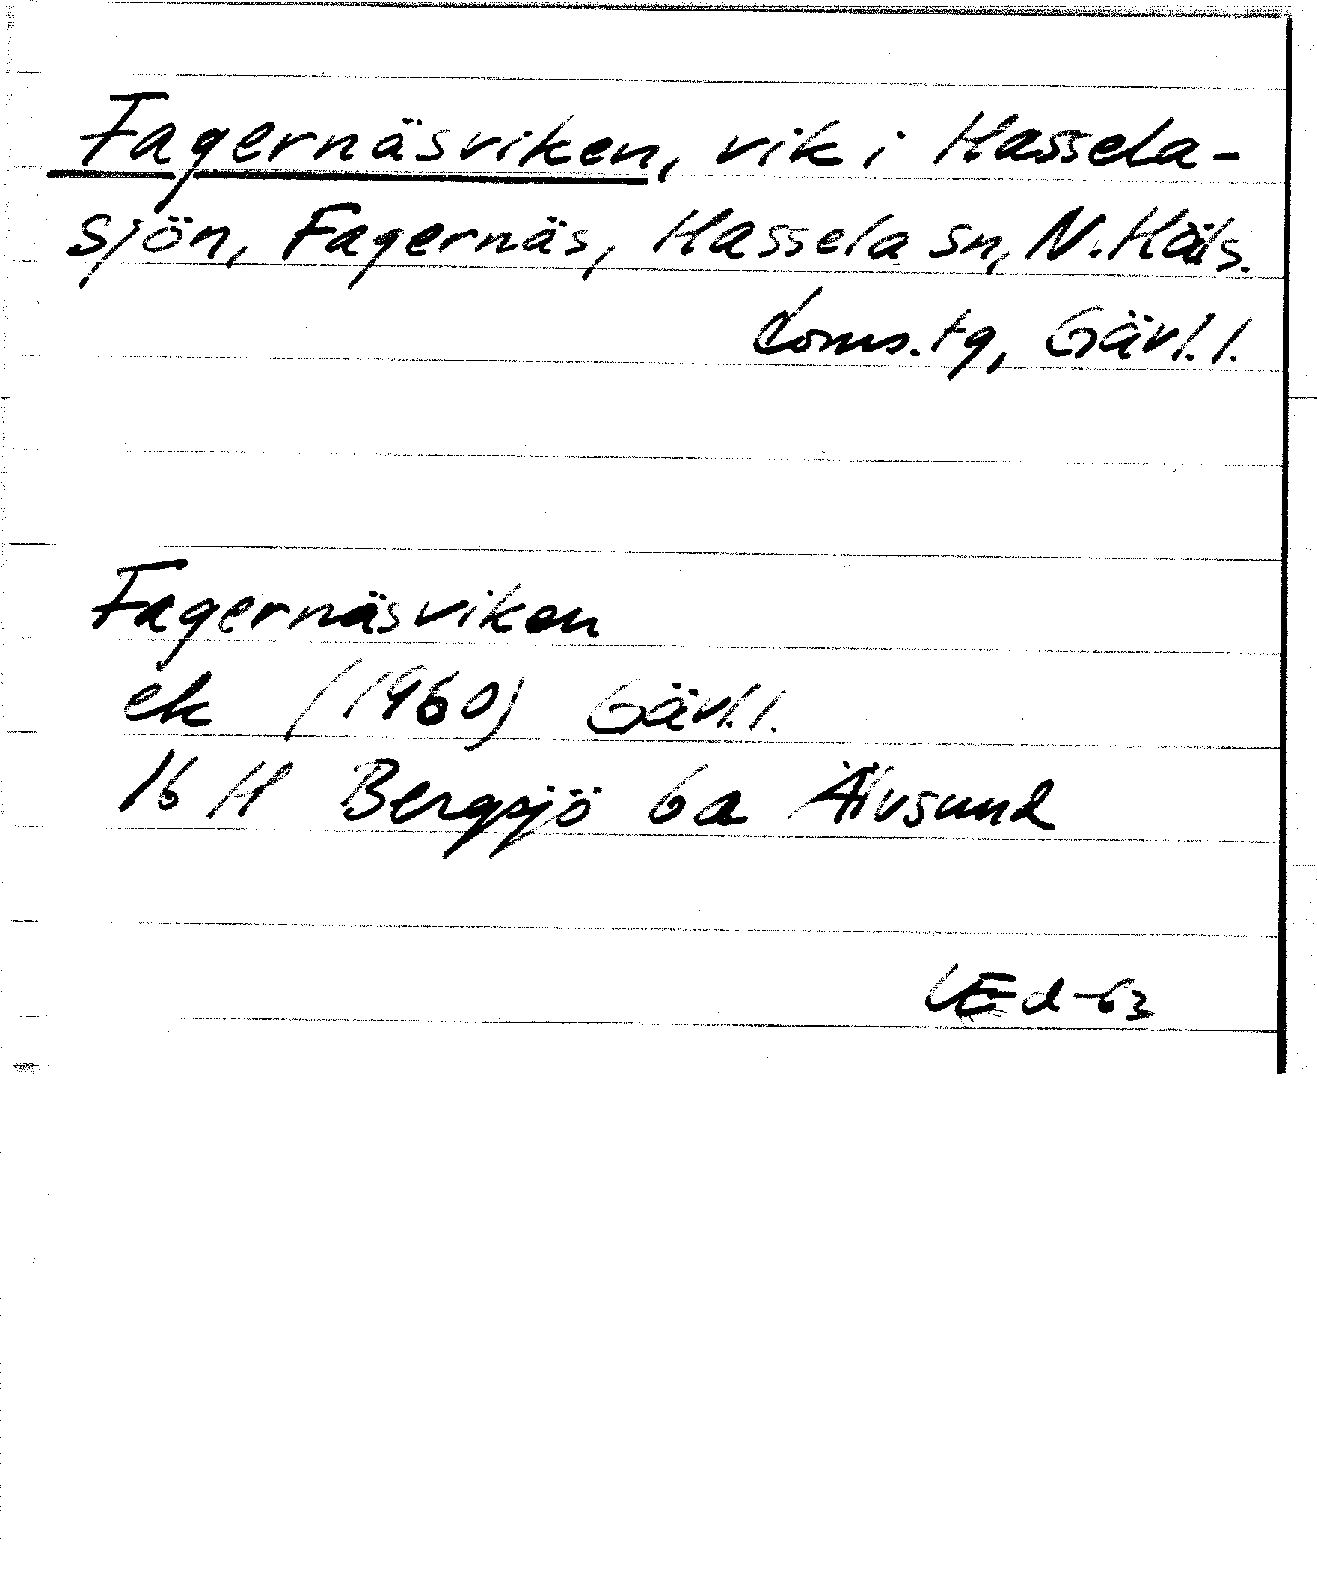 Fagernäsviken, vik i Hassela-
sjön, Fagernäs, Hassela sn, N. Häls.
doms. tg, Gävl. l.
Fagernäsviken
ek (1960) Gävl. l.
16 H Bergsjö 6a Älvsund
d -63